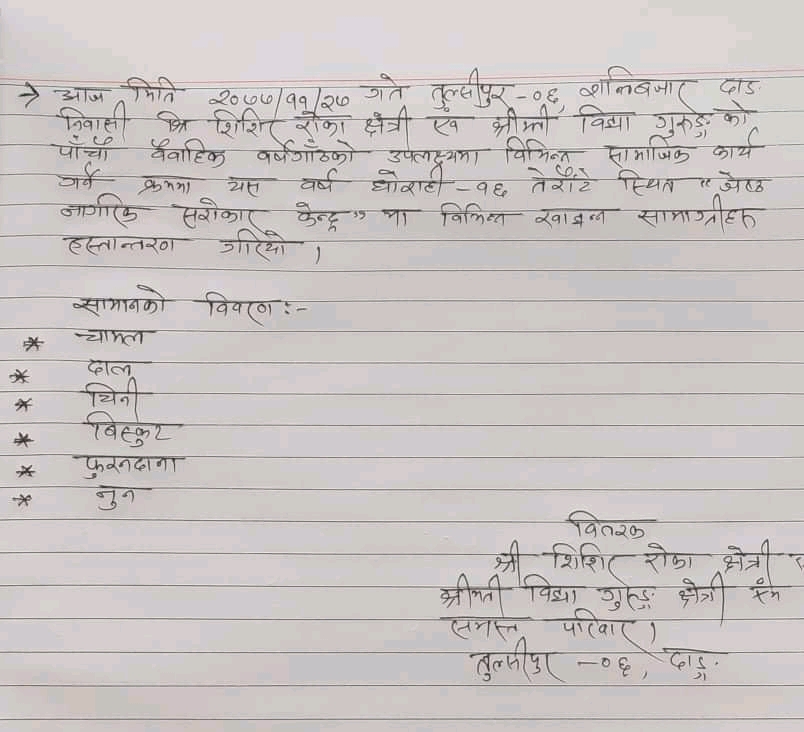 → आज मिति २०७७/११/२७ गते तुल्सीपुर -०६, शनिबजार दाङ
निवासी श्रि शिशिर रोका क्षेत्री एवं श्रीमती विद्या गुरुङ को
पाँचौ वैवाहिक वर्षगाँठको उपलक्ष्यमा विभिन्न सामाजिक कार्य
गर्ने क्रममा यस वर्ष घोराही -१६ तेरौटे स्थित "जेष्ठ
नागरिक सरोकार केन्द्र" मा विभिन्न खाद्यन्न सामाग्रीहरू
हस्तान्तरण गरियो ।
सामानको विवरण :-
* चामल
* दाल
* चिनी
* बिस्कुट
* फुरनदाना
* नुन
वितरक
श्री शिशिर रोका क्षेत्री
श्रीमती विद्या गुरुङ क्षेत्री
समस्त परिवार ।
तुल्सीपुर -०६, दाङ.